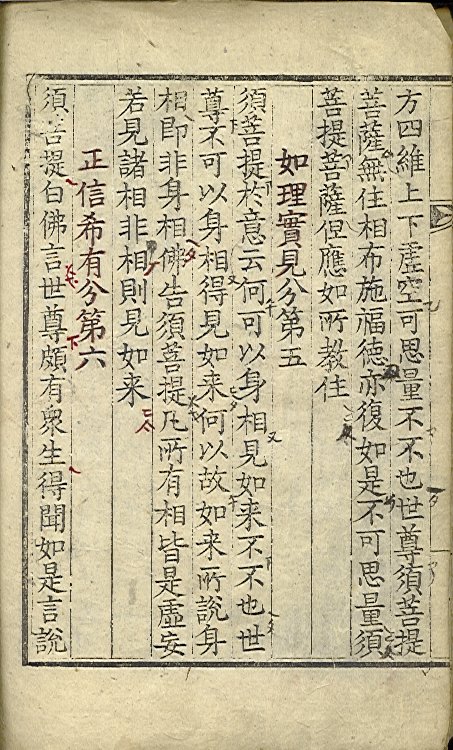 方四維上下虛空可思量不不也世尊須菩提
菩薩無住相布施福德亦復如是不可思量須
菩提菩薩但應如所教住
如理實見分第五
須菩提於意云何可以身相見如来不不也世
尊不可以身相得見如来何以故如来所說身
相即非身相佛告須菩提凡所有相皆是虛妄
若見諸相非相則見如来
正信希有分第六
須菩提白佛言世尊頗有衆生得聞如是言說